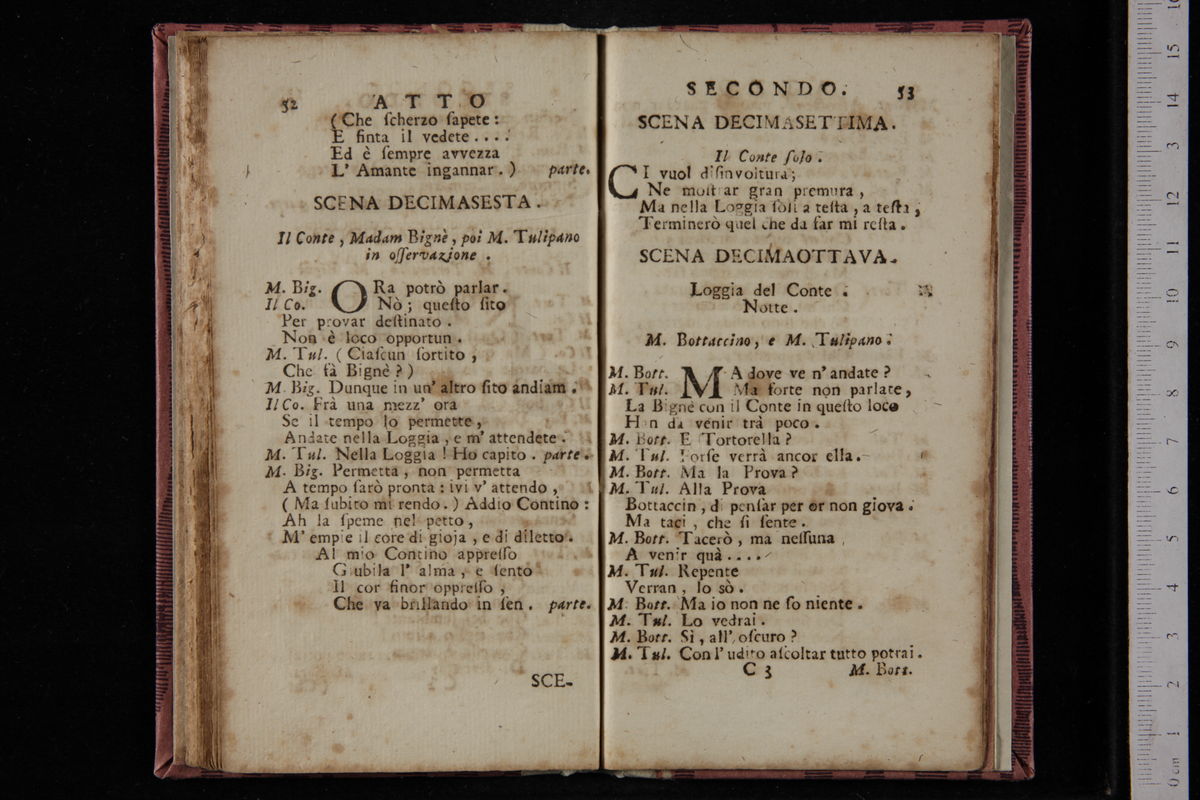 52 ATTO
(Che ſcherzo ſapete:
E finta il vedete....
Ed è ſempre avvezza
L' Amante ingannar.) parte.
SCENA DECIMASESTA.
Il Conte, Madam Bignè, poi M. Tulipano
in oſſervazione.
M. Big. ORa potrò parlar.
Il Co. Nò; queſto ſito
Per provar deſtinato.
Non è loco opportun.
M. Tul. (Ciaſcun ſortito,
Che fà Bignè?)
M. Big. Dunque in un' altro ſito andiam.
Il Co. Frà una mezz' ora
Se il tempo lo permette,
Andate nella Loggia, e m' attendete.
M. Tul. Nella Loggia! Ho capito. parte.
M. Big. Permetta, non permetta
A tempo ſarò pronta: ivi v' attendo,
(Ma ſubito mi rendo.) Addio Contino:
Ah la ſpeme nel petto,
M' empie il core di gioja, e di diletto.
Al mio Contino appreſſo
Giubila l' alma, e ſento
Il cor finor oppreſſo,
Che va brillando in ſen. parte.
SCE-
SECONDO. 53
SCENA DECIMASETTIMA.
Il Conte ſolo.
CI vuol diſinvoltura;
Ne moſtrar gran premura,
Ma nella Loggia ſoli a teſta, a teſta,
Terminerò quel che da far mi reſta.
SCENA DECIMAOTTAVA.
Loggia del Conte.
Notte.
M. Bottaccino, e M. Tulipano.
M. Bott. MA dove ve n' andate?
M. Tul. Ma forte non parlate,
La Bignè con il Conte in queſto loco
Han da venir trà poco.
M. Bott. E Tortorella?
M. Tul. Forſe verrà ancor ella.
M. Bott. Ma la Prova?
M. Tul. Alla Prova
Bottaccin, di penſar per or non giova.
Ma taci, che ſi ſente.
M. Bott. Tacerò, ma neſſuna
A venir quà....
M. Tul. Repente
Verran, lo sò.
M. Bott. Ma io non ne ſo niente.
M. Tul. Lo vedrai.
M. Bott. Sì, all' oſcuro?
M. Tul. Con l' udito aſcoltar tutto potrai.
C 3 M. Bott.